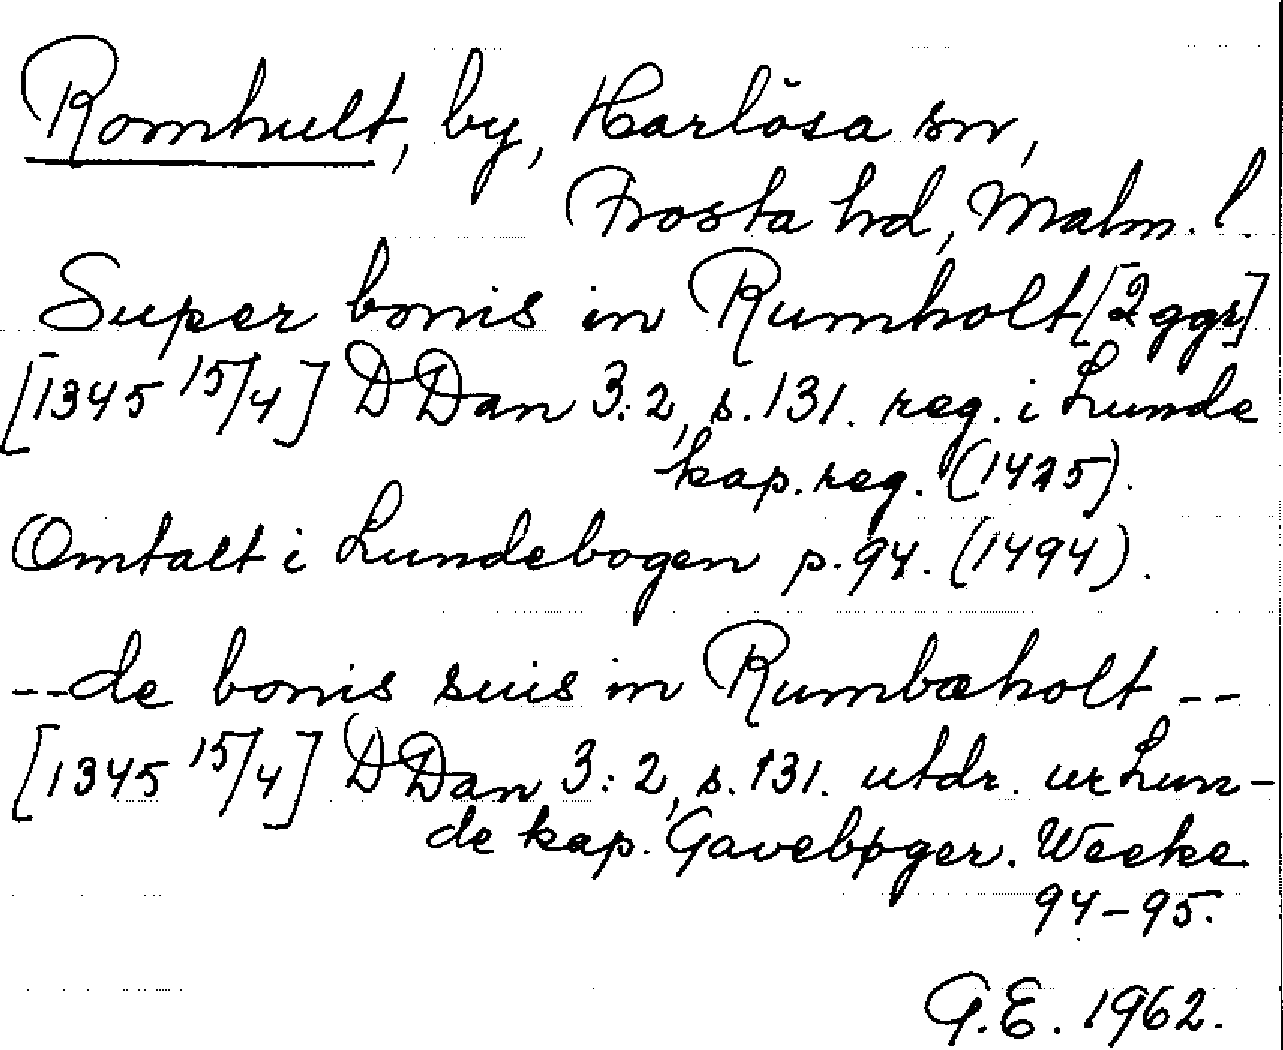 Romhult, by, Harlösa sn,
Frosta hd, Malm. l.
Super bonis in Rumholt [2 ggr]
[1345 15/4] DDan 3:2, s. 131. reg. i Lunde
kap. reg. (1425).
Omtalt i Lundebogen p. 94. (1494).
-- de bonis suis in Rumbæholt --
[1345 15/4] DDan 3:2, s. 131. utdr. ur Lun-
de kap. Gavebøger. Weeke
94-95.
G.E. 1962.